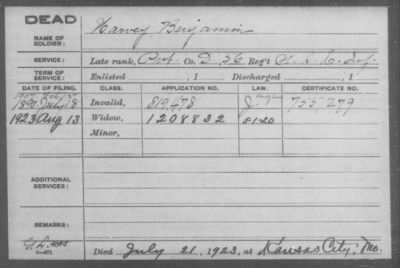 DEAD
NAME OF SOLDIER: Harvey Benjamin
SERVICE: Late rank, Pvt. Co. D 36 Reg't U.S.C. Inf.
TERM OF SERVICE: Enlisted , 1 Discharged , 1
DATE OF FILING. CLASS. APPLICATION NO. LAW. CERTIFICATE NO.
July 18 Invalid, 819478 755279
1923 Aug 13 Widow, 1208832 S1-20
Minor,
ADDITIONAL SERVICES:
REMARKS:
Died July 21, 1923, at Kansas City, Mo.